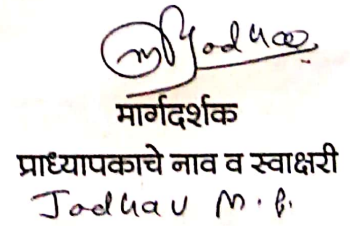 Jadhav
मार्गदर्शक
प्राध्यापकाचे नाव व स्वाक्षरी
Jadhav M. G.